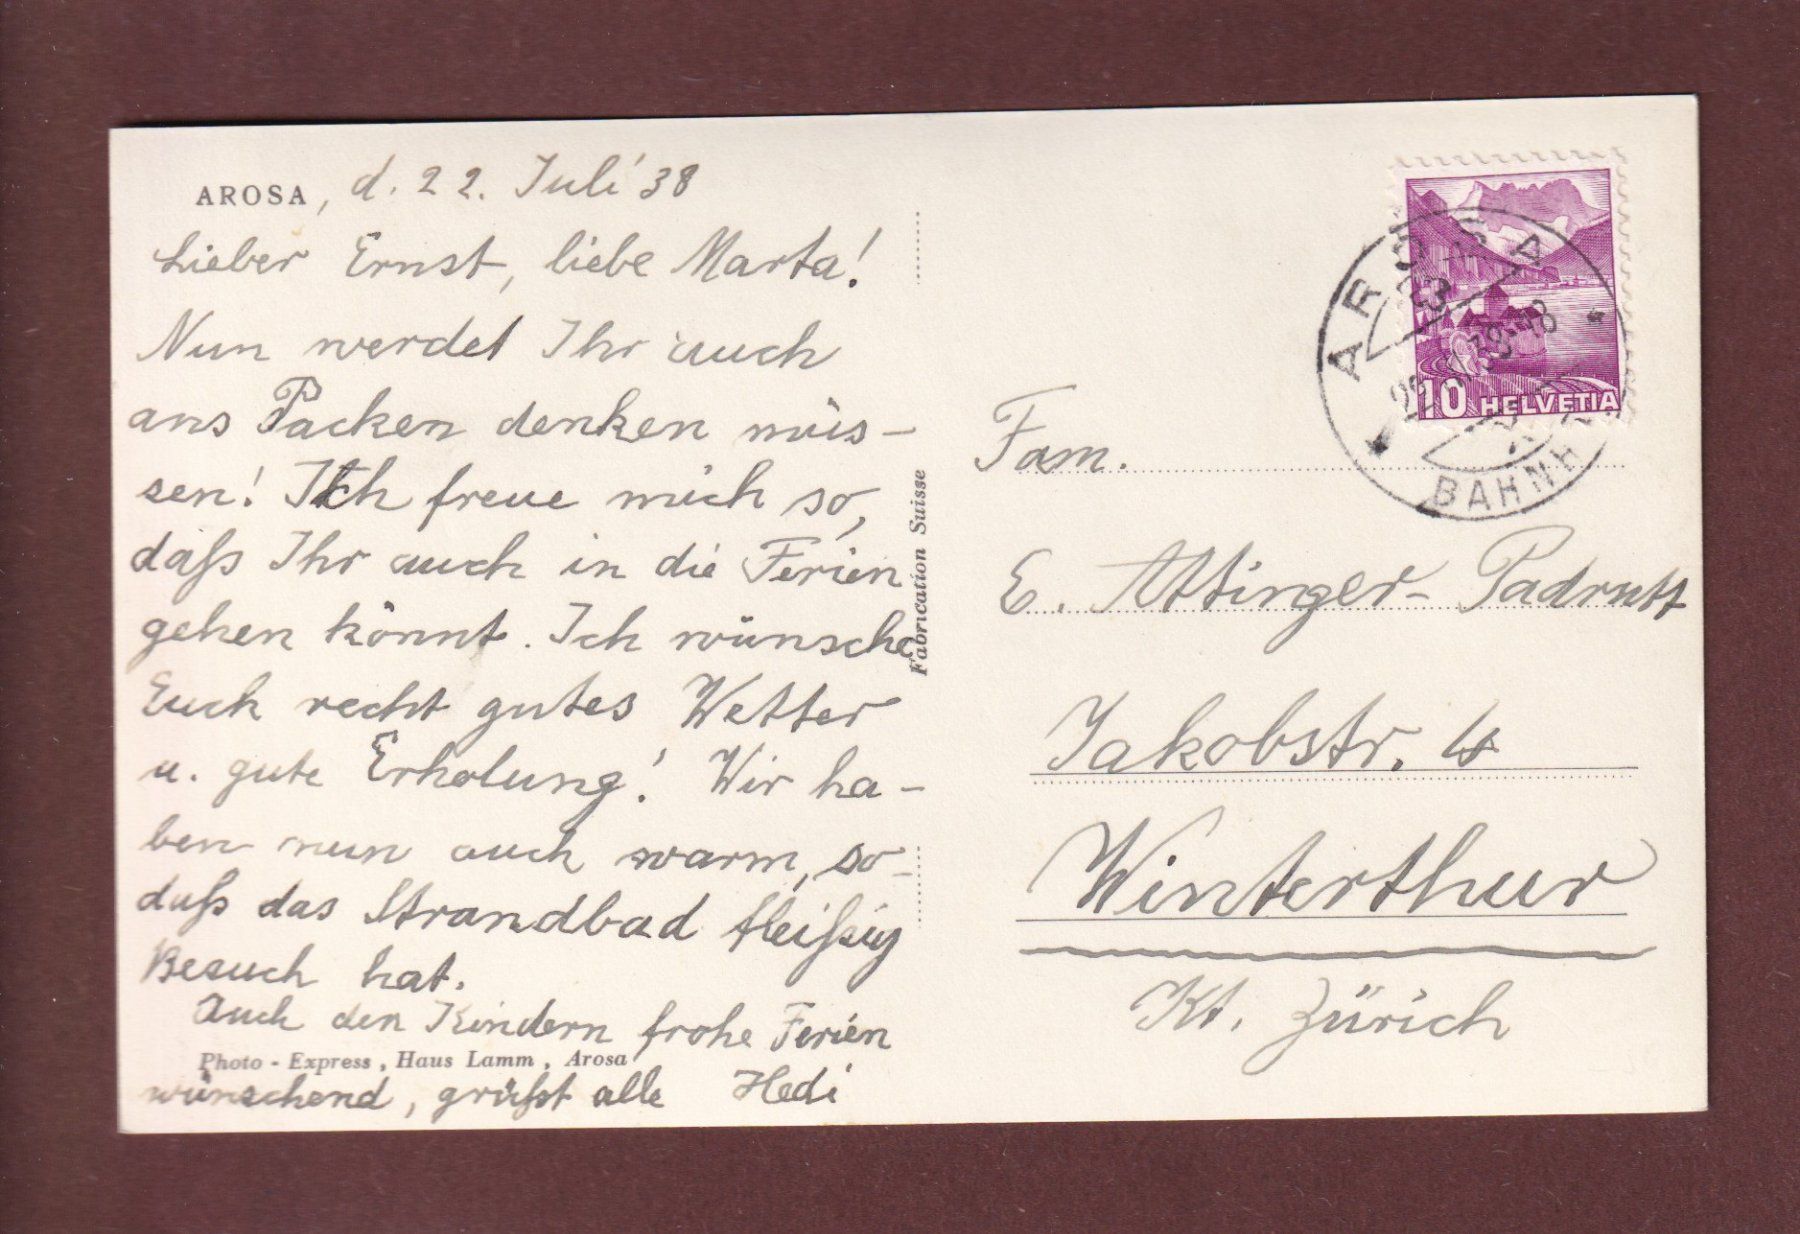 AROSA, d. 22. Juli '38
Lieber Ernst, liebe Marta!
Nun werdet Ihr auch
ans Packen denken müs-
sen! Ich freue mich so,
daß Ihr auch in die Ferien
gehen könnt. Ich wünsche
Euch recht gutes Wetter
u. gute Erholung! Wir ha-
ben nun auch warm, so-
daß das Strandbad fleißig
Besuch hat.
Auch den Kindern frohe Ferien
Photo - Express, Haus Lamm, Arosa
wünschend, grüßt alle Hedi
Fabrication Suisse
AROSA
22. VII. 38-18
BAHNH
10 HELVETIA
Fam.
E. Attinger-Padrutt
Jakobstr. 4
Winterthur
Kt. Zürich